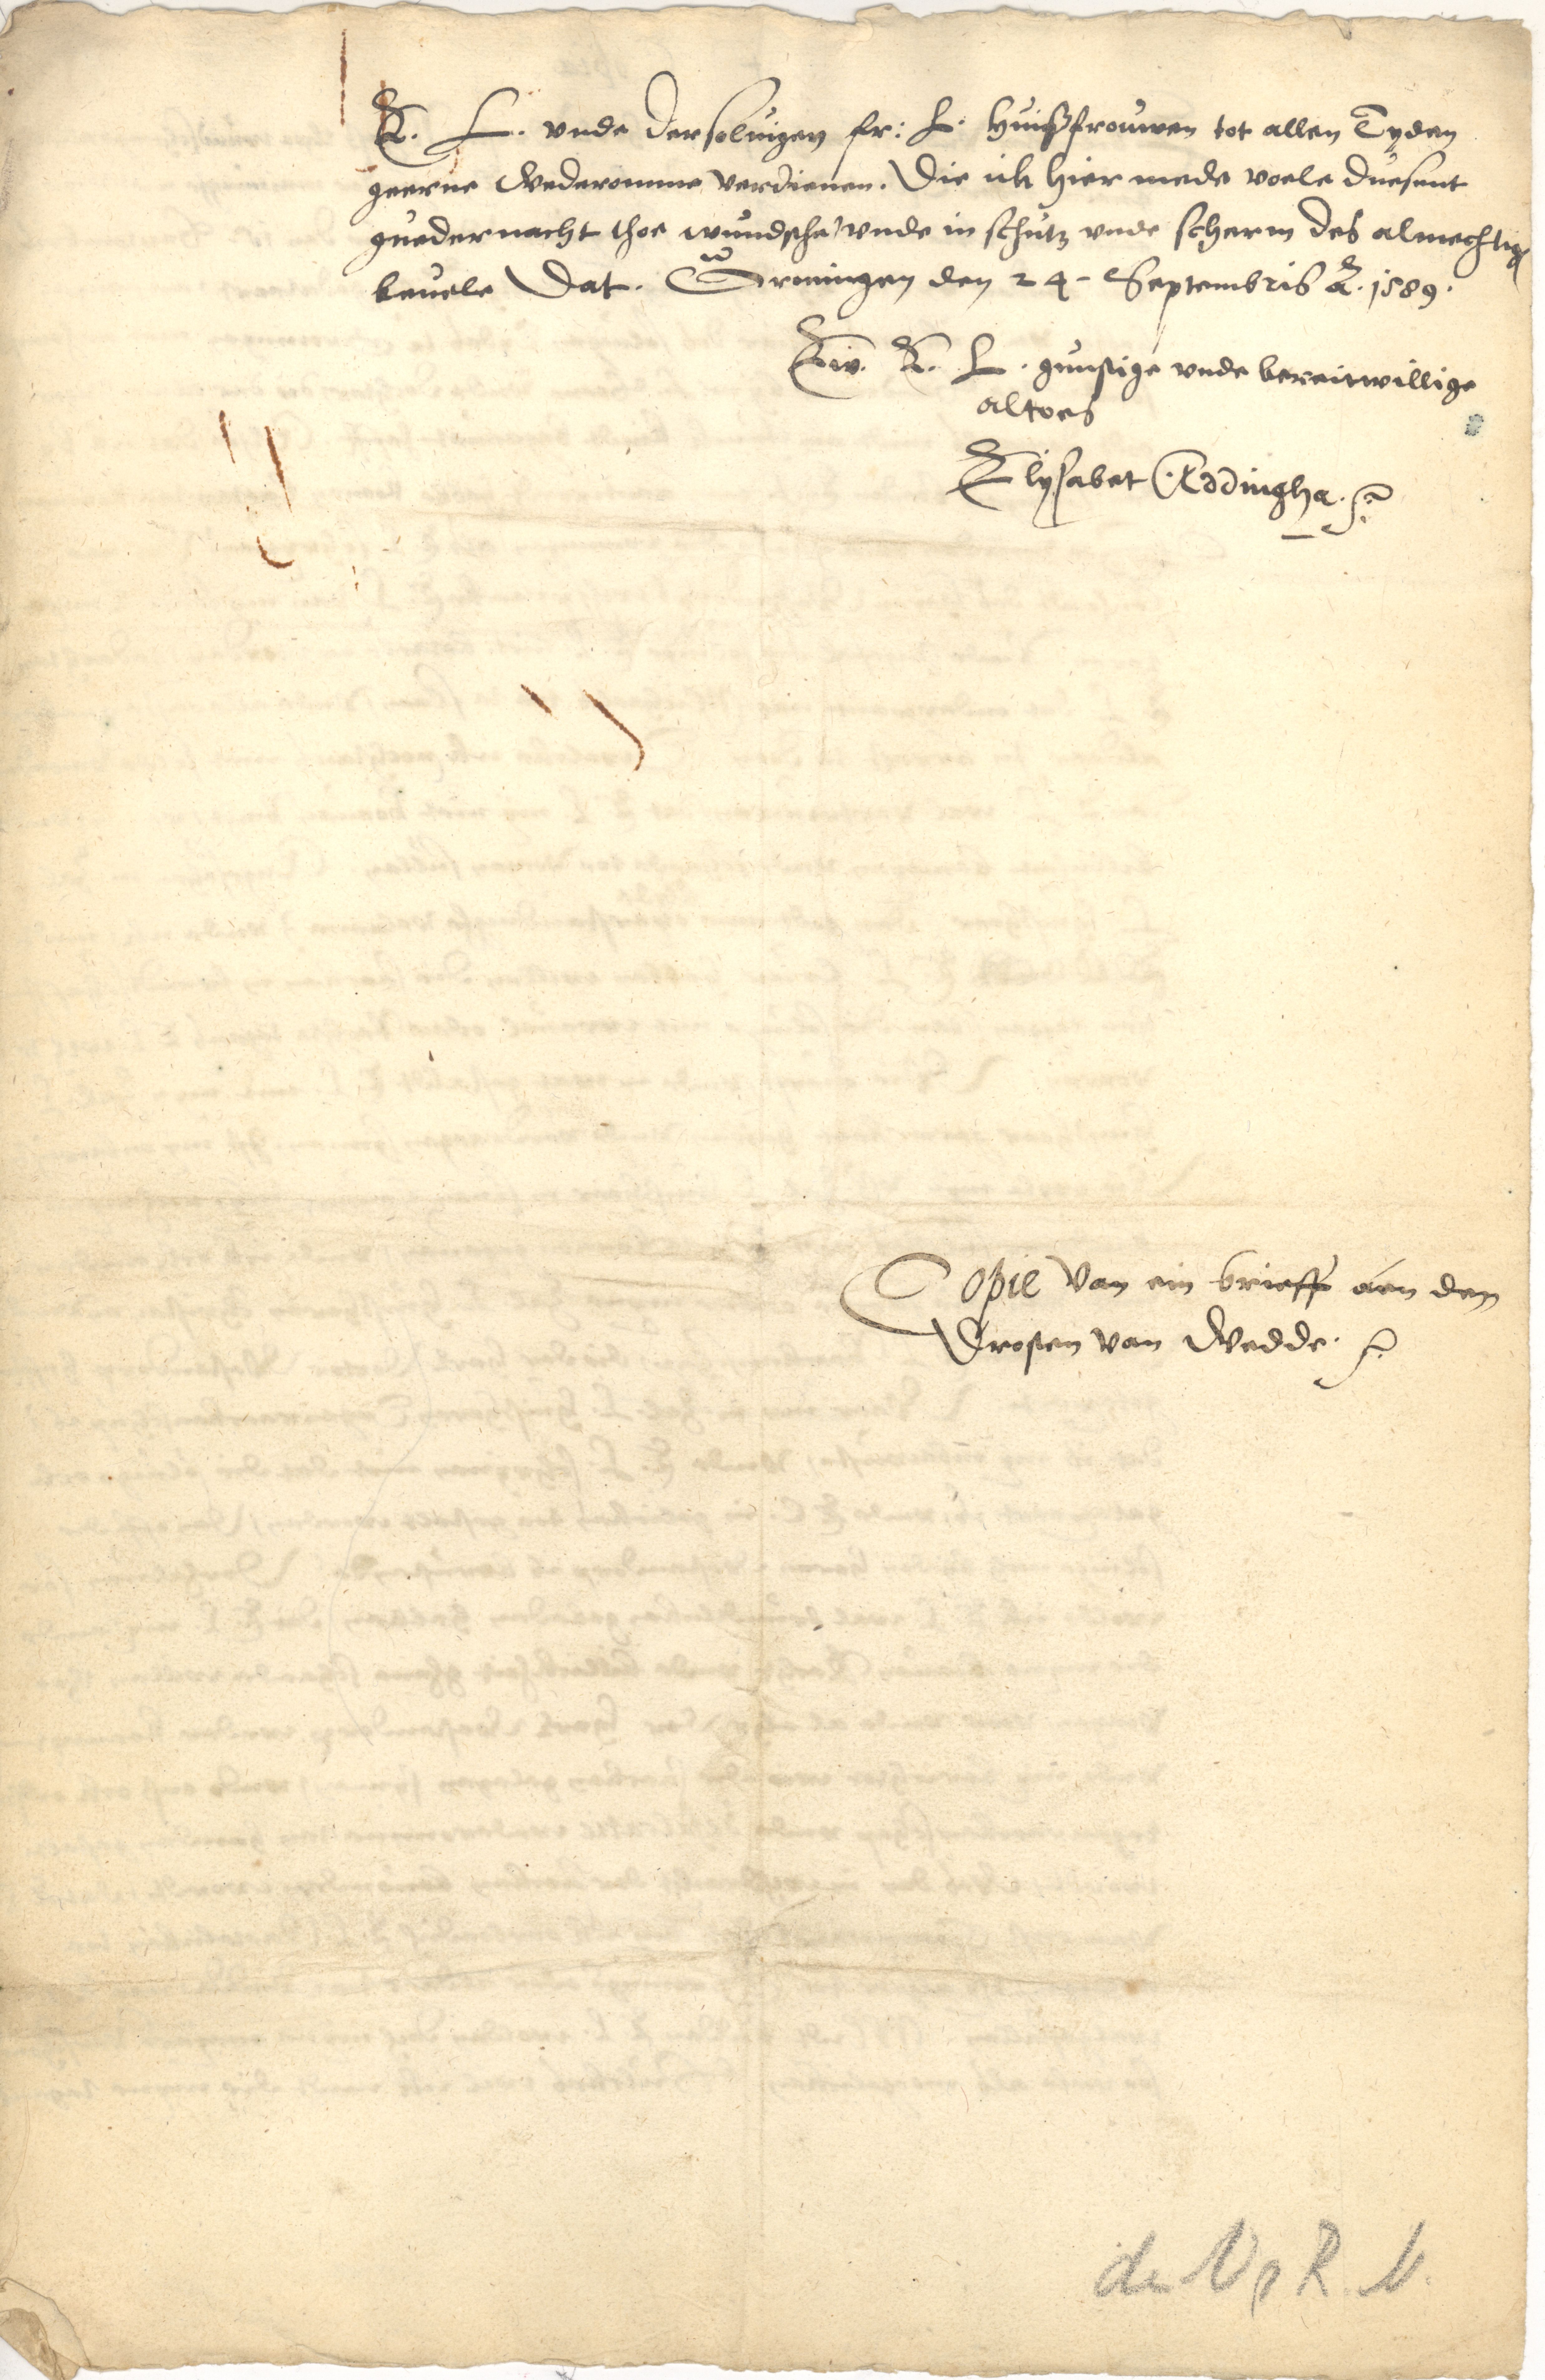 E. L. vnde derseluigen fr: L. huißfrouwen tot allen Tyden
geerne wederomme verdienen. Die ick hier mede voele duesent
guedernacht thoe wundsche vnde in schutz vnde scherm des almechtig
beuele Dat. Gröningen den 24 Septembris A. 1589.
Ew. E. L. gunstige vnde bereitwillige
altoes
Elysabet Addingha.
Copie van ein brieff aen den
Drosten van Wedde.